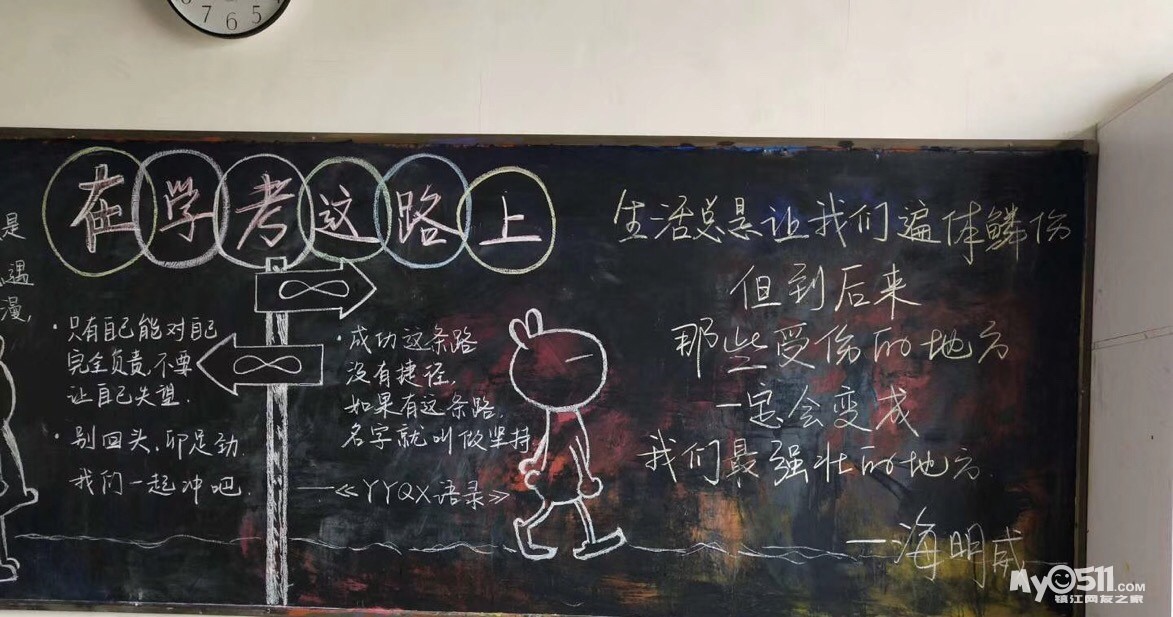 7 6 5
在学考这路上
是
遇
漫,
·只有自己能对自己
完全负责,不要
让自己失望.
·别回头,卯足劲.
我们一起冲吧.
·成功这条路
没有捷径,
如果有这条路,
名字就叫做坚持
——《YYQX语录》
生活总是让我们遍体鳞伤
但到后来
那些受伤的地方
一定会变成
我们最强壮的地方.
—海明威
My0511.COM
镇江网友之家